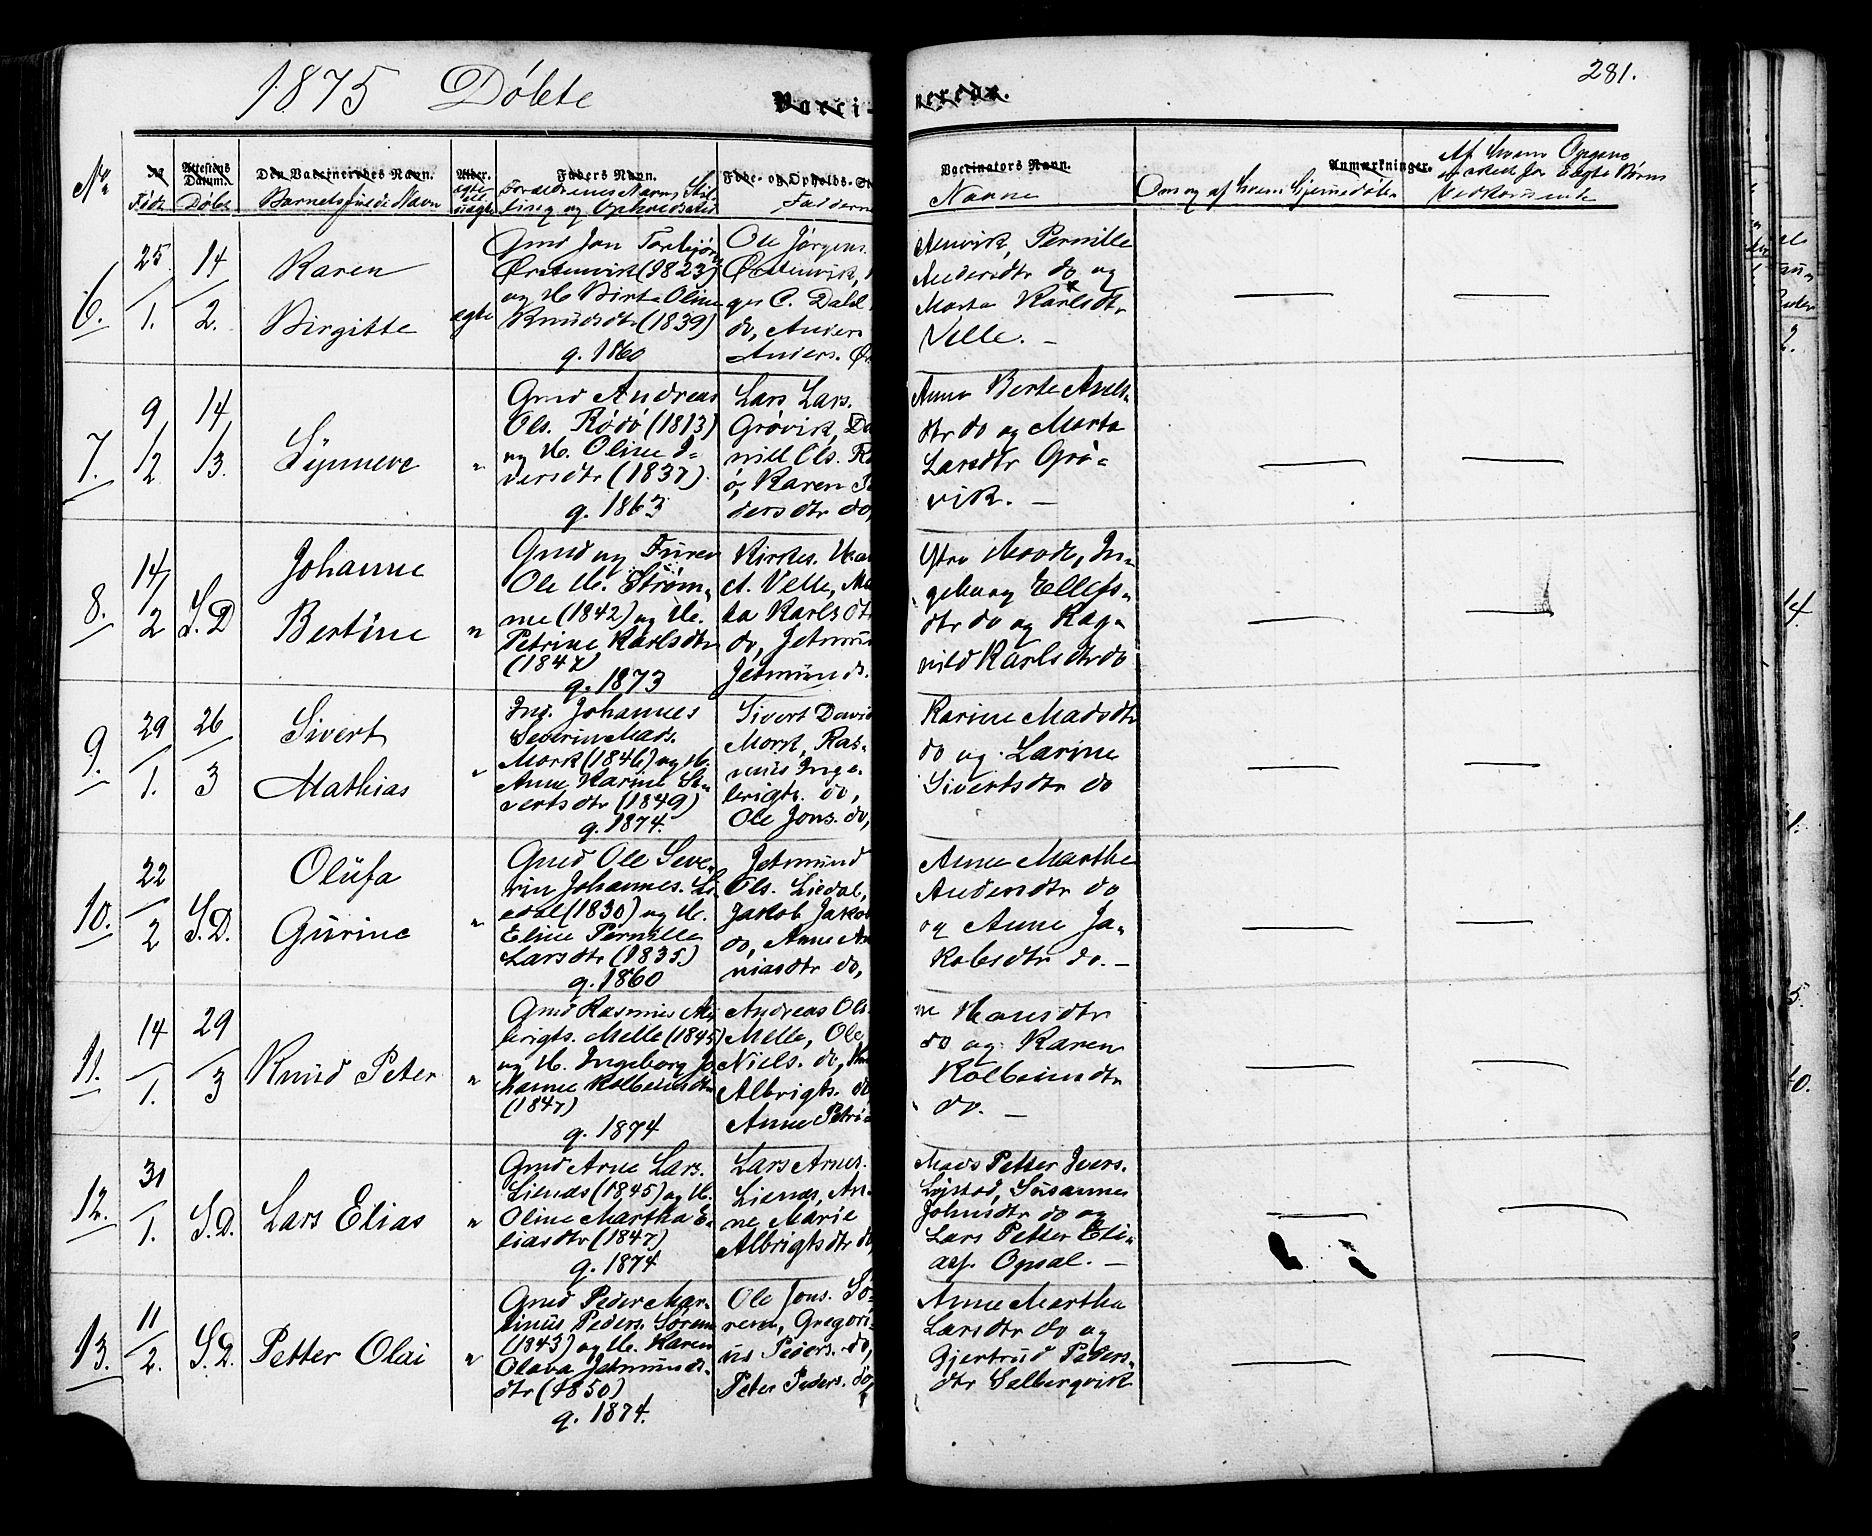 1875 Döbte
281.
Vacci-
nerede.
No
Födt
Attestens Datum.
Döbt
Den Vaccineredes Navn.
Barnets fulde Navn
Alder.
ægte ell. uægte
Faders Navn.
Forældrenes Navn, Stil-
ling og Opholdssted
Føde- og Opholds-St
Faddern
Vaccinators Navn.
Navne
Anmærkninger.
Om og af hvem hjemmedöbt
Af hvem Opgave
er skeet for Uægte Börns
Vedkommende
6.
25/1.
14/2.
Karen
Birgitte
ægte
Gmd Jon Torbjörns
Ørstenvik (1823)
og H. Birte Oline
Knudsdtr (1839)
g. 1860
Ole Jörgens.
Ørstenvik,
ges C. Dahl
do, Anders
Anders. Ør
stenvik, Pernille
Andersdtr do og
Marta Karlsdtr
Velle. –
7.
9/12
14/13.
Synneve
"
Gmd Andreas
Ols. Rödö (1813)
og H. Oline I-
versdtr (1837)
g. 1863
Lars Lars.
Grövik, Da
niel Ols. Rö
ö, Karen Pe
dersdtr do,
Anna Berte Anders-
dtr do og Marta
Larsdtr Grö-
vik. –
8.
14/2
S.D
Johanne
Bertine
"
Gmd og Furer
Ole H. Ström-
me (1842) og H.
Petrine Karlsdtr
(1847)
g. 1873
Kirkes. Ha
A. Velle, Ma
ta Karlsdtr
do, Jetmun
Jetmunds.
Ytre Moode, In-
geborg Ellefs-
dtr do og Rag-
nild Karlsdtr do
9.
29/1.
26/3
Sivert
Mathias
"
Ind. Johannes
Severin Mads.
Mork (1846) og H.
Anne Karine Si-
vertsdtr (1849)
g. 1874.
Sivert David
Mork, Ras-
mus Inge-
brigts. do,
Ole Jons. do,
Karine Madsdtr
do og Larine
Sivertsdtr do
10.
22/2
S.D.
Olufa
Gurine
"
Gmd Ole Seve-
rin Johannes. Li-
edal (1830) og H.
Eline Pernille
Larsdtr (1835)
g. 1860
Jetmund
Ols. Liedal,
Jakob Jakob
do, Anne An
niasdtr do,
Anne Marthe
Andersdtr do
og Anne Ja-
kobsdtr do. –
11.
14/1.
29/3
Knud Peter
"
Gmd Rasmus Al-
brigts. Melle (1845)
og H. Ingeborg Jo-
hanne Kolbeinsdtr
(1847)
g. 1874
Andreas Ols.
Melle, Ole
Niels. do, Knu
Albrigts. do
Anne Petri-
ne Hansdtr
do og Karen
Kolbeinsdtr
do. –
12.
31/1.
S.D.
Lars Elias
"
Gmd Arne Lars.
Lienæs (1845) og H.
Oline Martha E-
liasdtr (1847)
g. 1874
Lars Arnes.
Lienæs, An-
ne Marie
Albrigtsdtr do
Mads Petter Ivers.
Lystad, Susanne
Johnsdtr do og
Lars Petter Eli-
as. Opsal. –
13.
11/2.
S.D.
Petter Olai
"
Gmd Peder Mar-
tinus Peders. Sörem
(1843) og H. Karen
Olava Jetmunds-
dtr (1850)
g. 1874.
Ole Jons. Sö-
rem, Gregori-
us Peders. do,
Peter Peders. do,
Anne Martha
Larsdtr do og
Gjertrud Peders-
dtr Selbervik